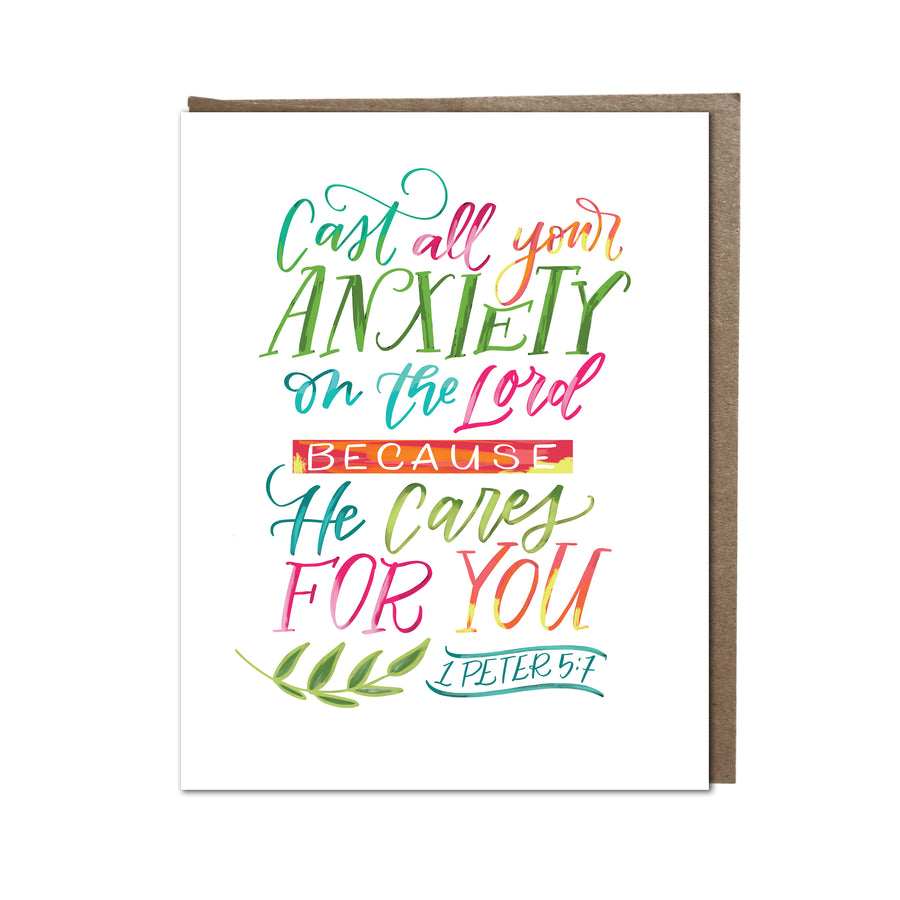 Cast all your
ANXIETY
on the Lord
BECAUSE
He Cares
FOR YOU
1 PETER 5:7